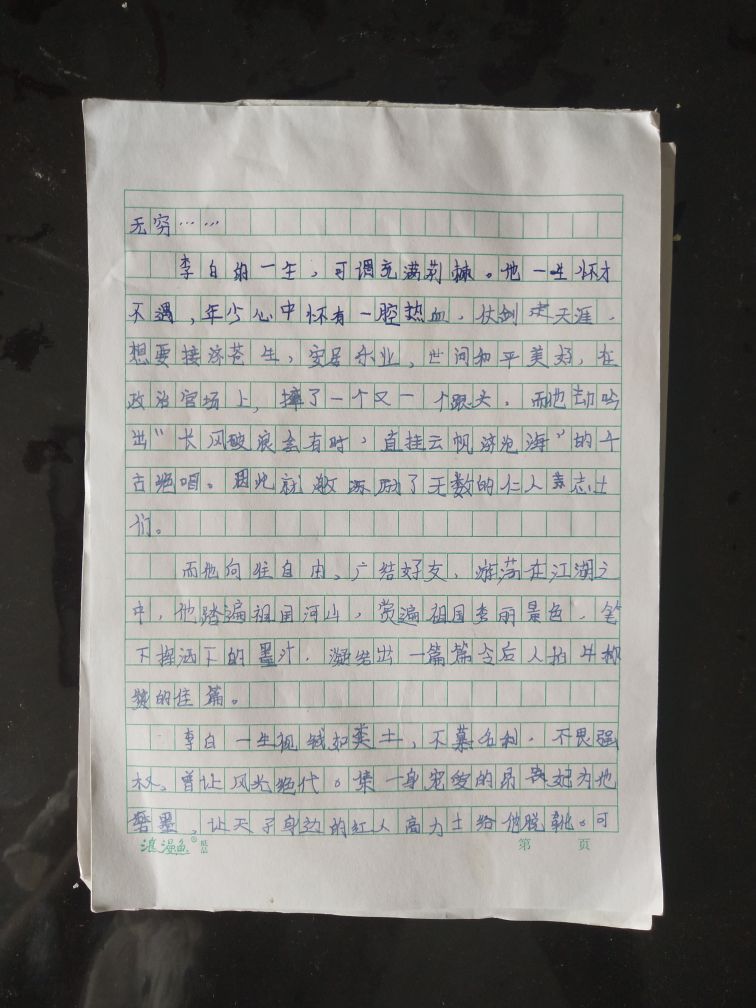 无穷……
李白的一生，可谓充满荆棘。他一生怀才
不遇，年少心中怀有一腔热血，仗剑走天涯，
想要接济苍生，安居乐业，世间和平美好，在
政治官场上，摔了一个又一个跟头，而他却吟
出“长风破浪会有时，直挂云帆济沧海”的千
古绝唱。因此就激励了无数的仁人志士
们。
而他向往自由，广结好友，游荡在江湖之
中，他踏遍祖国河山，赏遍祖国秀丽景色，笔
下挥洒下的墨汁，凝结出一篇篇令后人拍手称
赞的佳篇。
李白一生视钱如粪土，不慕名利，不畏强
权。曾让风光绝代。集一身宠爱的杨贵妃为他
磨墨，让天子身边的红人高力士给他脱靴。可
浪漫鱼®
第 页